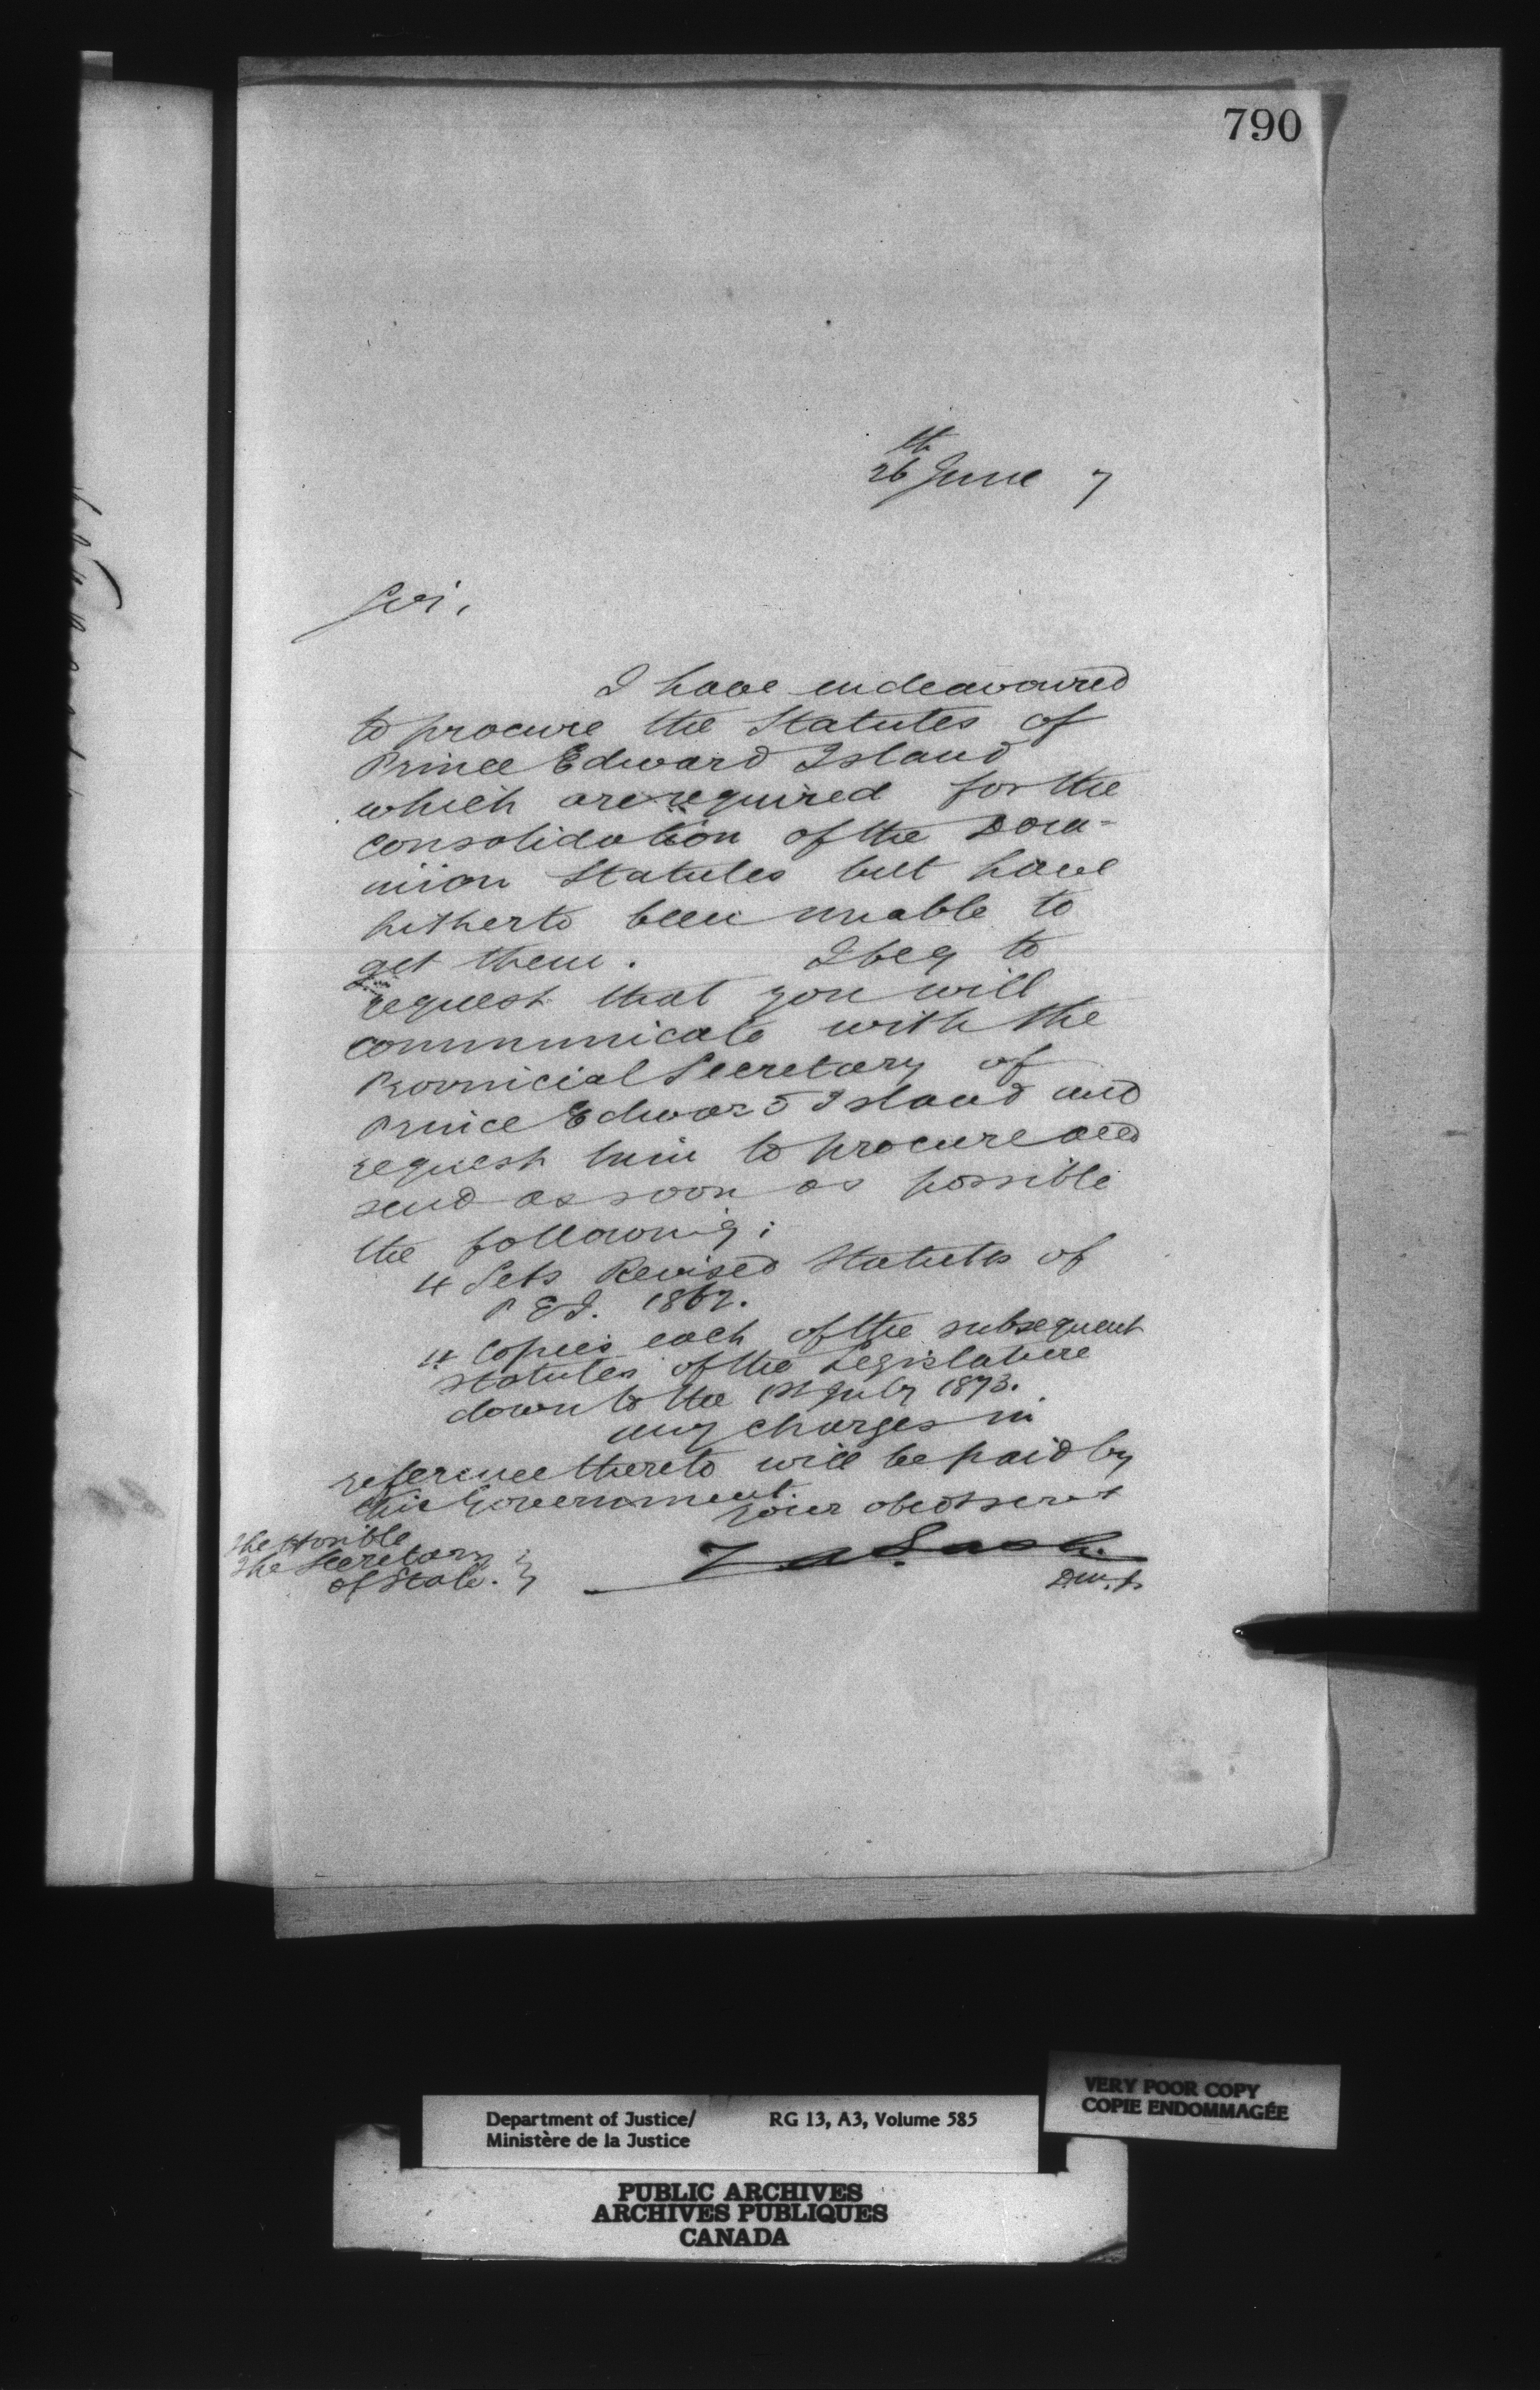 790
26th June 7
Sir,
I have endeavoured
to procure the Statutes of
Prince Edward Island
which are required for the
consolidation of the Dom-
inion Statutes but have
hitherto been unable to
get them. I beg to
request that you will
communicate with the
Provincial Secretary of
Prince Edward Island and
request him to procure and
send as soon as possible
the following:
4 Sets Revised Statutes of
P E I. 1862.
4 Copies each of the subsequent
statutes of the Legislature
down to the 1st July 1873.
any charges in
reference thereto will be paid by
this Government.
your obedt servt
Z. A. Lash.
D. M. J.
The Honble
The Secretary
of State.
Department of Justice/
Ministère de la Justice
RG 13, A3, Volume 585
VERY POOR COPY
COPIE ENDOMMAGÉE
PUBLIC ARCHIVES
ARCHIVES PUBLIQUES
CANADA